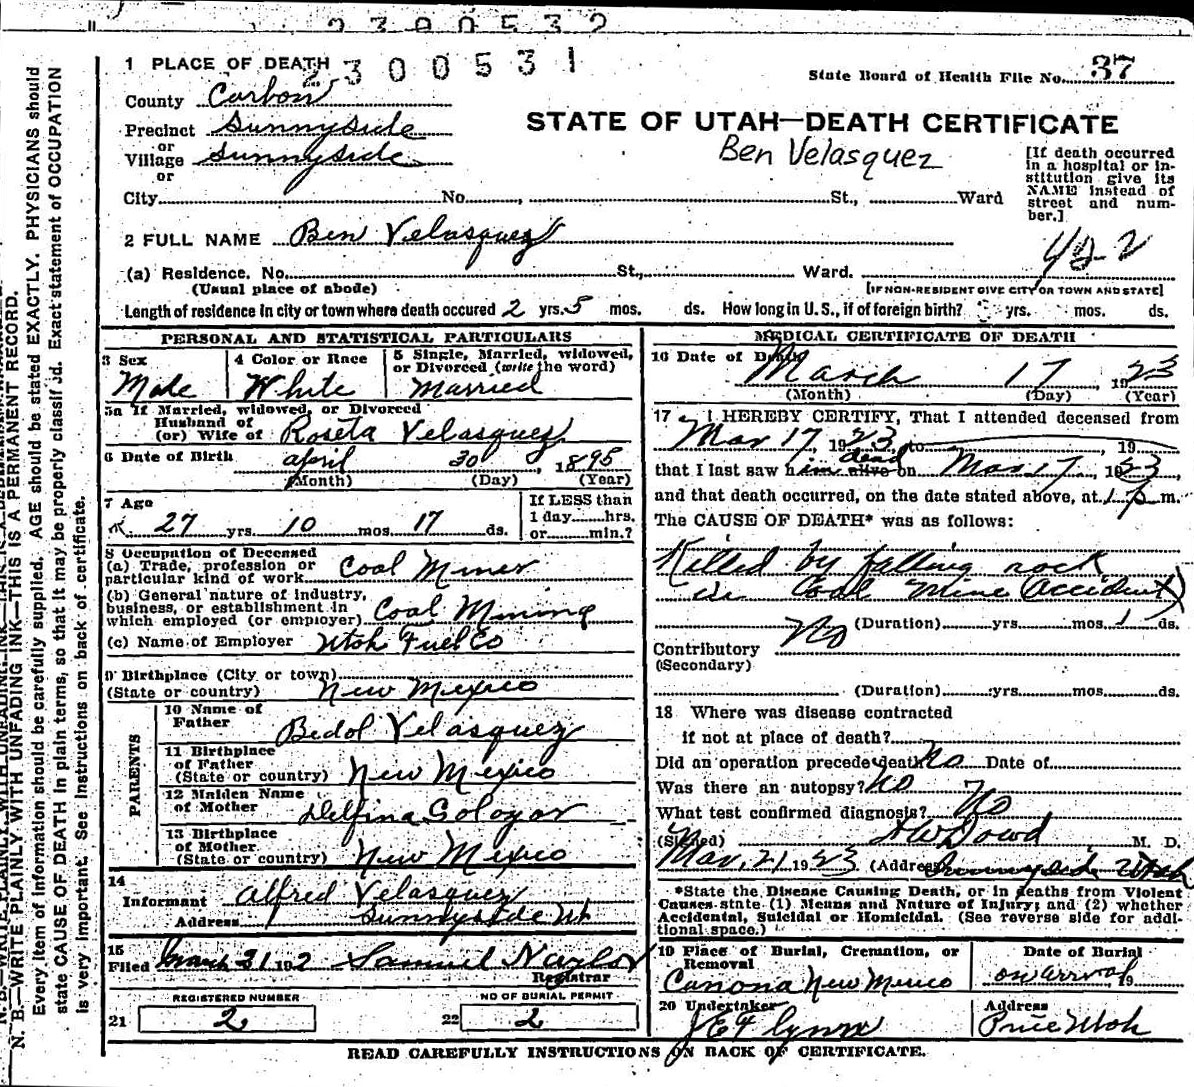 2300532
2300531
1 PLACE OF DEATH
State Board of Health File No. 37
County Carbon
Precinct Sunnyside
or
Village Sunnyside
or
City No. , St., Ward
STATE OF UTAH—DEATH CERTIFICATE
Ben Velasquez
[If death occurred in a hospital or in-
stitution give its
NAME instead of
street and num-
ber.]
2 FULL NAME Ben Velasquez
(a) Residence. No. St., Ward.
(Usual place of abode)
[IF NON-RESIDENT GIVE CITY OR TOWN AND STATE]
Length of residence in city or town where death occured 2 yrs. 5 mos. ds. How long in U.S., if of foreign birth? yrs. mos. ds.
PERSONAL AND STATISTICAL PARTICULARS
3 Sex
Male
4 Color or Race
White
5 Single, Married, widowed,
or Divorced (write the word)
Married
5a If Married, widowed, or Divorced
Husband of
(or) Wife of Roseta Velasquez
6 Date of Birth April 30, 1895
(Month) (Day) (Year)
7 Age
27 yrs. 10 mos. 17 ds.
If LESS than
1 day hrs.
or min.?
8 Occupation of Deceased
(a) Trade, profession or
particular kind of work Coal Miner
(b) General nature of industry,
business, or establishment in
which employed (or employer) Coal Mining
(c) Name of Employer Utah Fuel Co
9 Birthplace (City or town)
(State or country) New Mexico
PARENTS
10 Name of
Father Bedol Velasquez
11 Birthplace
of Father
(State or country) New Mexico
12 Maiden Name
of Mother Delfina
13 Birthplace
of Mother
(State or country) New Mexico
14
Informant Alfred Velasquez
Address Sunnyside Ut
15
Filed March 21 192 Samuel Naylor
Registrar
REGISTERED NUMBER
21 2
NO OF BURIAL PERMIT
22 2
MEDICAL CERTIFICATE OF DEATH
16 Date of Death
March 17, 1923
(Month) (Day) (Year)
17 I HEREBY CERTIFY, That I attended deceased from
Mar 17, 1923, to , 19
that I last saw him alive dead on Mar 17, 1923,
and that death occurred, on the date stated above, at 1 p m.
The CAUSE OF DEATH* was as follows:
Killed by falling rock
in Coal Mine (Accident)
(Duration) yrs. mos. 1 ds.
Contributory No
(Secondary)
(Duration) yrs. mos. ds.
18 Where was disease contracted
if not at place of death?
Did an operation precede death No Date of
Was there an autopsy? No
What test confirmed diagnosis? No
(Signed) H W Dowd M. D.
Mar. 21, 1923 (Address) Sunnyside Utah
*State the Disease Causing Death, or in deaths from Violent
Causes state (1) Means and Nature of Injury; and (2) whether
Accidental, Suicidal or Homicidal. (See reverse side for addi-
tional space.)
19 Place of Burial, Cremation, or
Removal
Canona New Mexico
Date of Burial
on arrival, 19
20 Undertaker
J E Flynn
Address
Price Utah
READ CAREFULLY INSTRUCTIONS ON BACK OF CERTIFICATE.
N. B.—WRITE PLAINLY WITH UNFADING INK—THIS IS A PERMANENT RECORD.
Every item of information should be carefully supplied. AGE should be stated EXACTLY. PHYSICIANS should
state CAUSE OF DEATH in plain terms, so that it may be properly classified. Exact statement of OCCUPATION
is very important. See instructions on back of certificate.